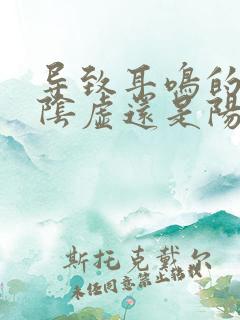 导致耳鸣的
陰虚還是陽
斯托克戴尔
未经同意禁止转载